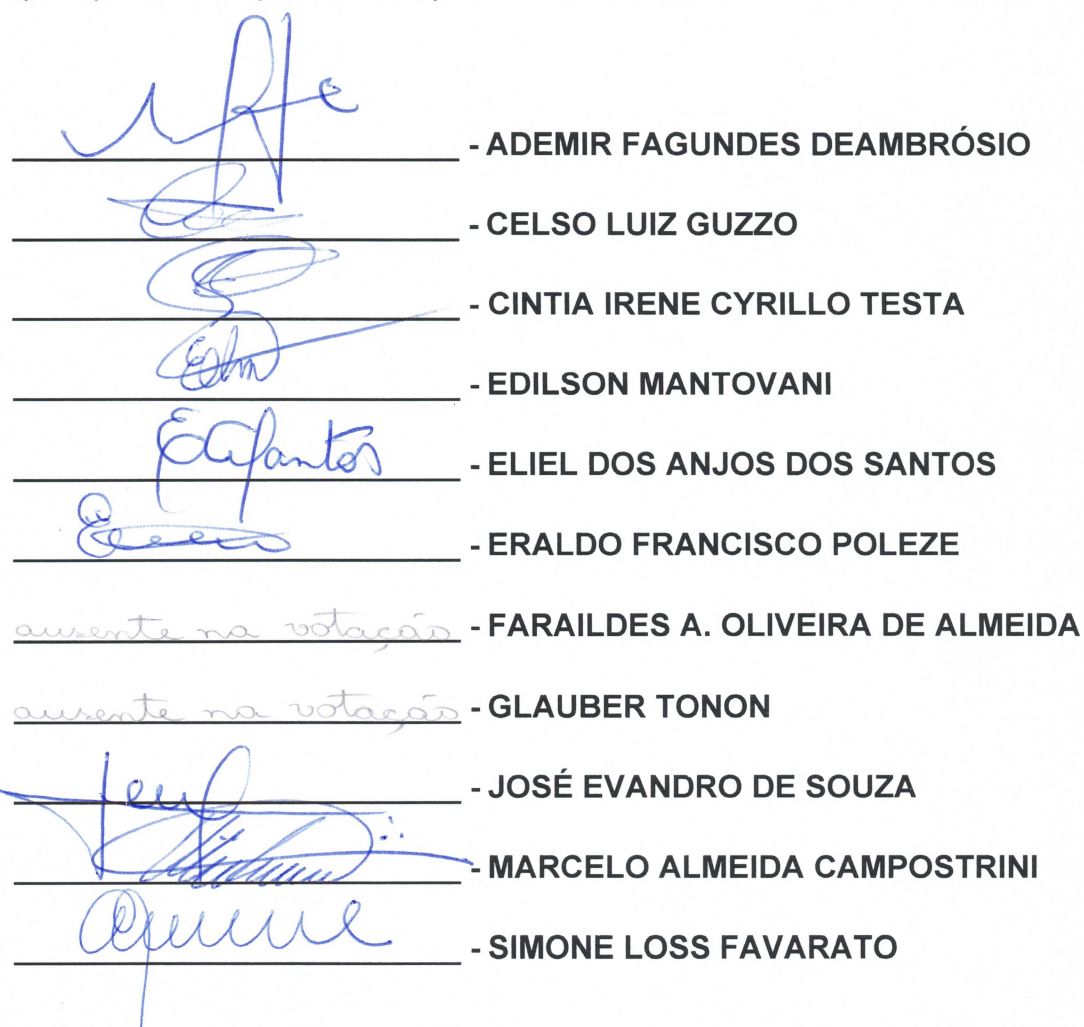 - ADEMIR FAGUNDES DEAMBRÓSIO
- CELSO LUIZ GUZZO
- CINTIA IRENE CYRILLO TESTA
- EDILSON MANTOVANI
- ELIEL DOS ANJOS DOS SANTOS
- ERALDO FRANCISCO POLEZE
ausente na votação - FARAILDES A. OLIVEIRA DE ALMEIDA
ausente na votação - GLAUBER TONON
- JOSÉ EVANDRO DE SOUZA
- MARCELO ALMEIDA CAMPOSTRINI
- SIMONE LOSS FAVARATO